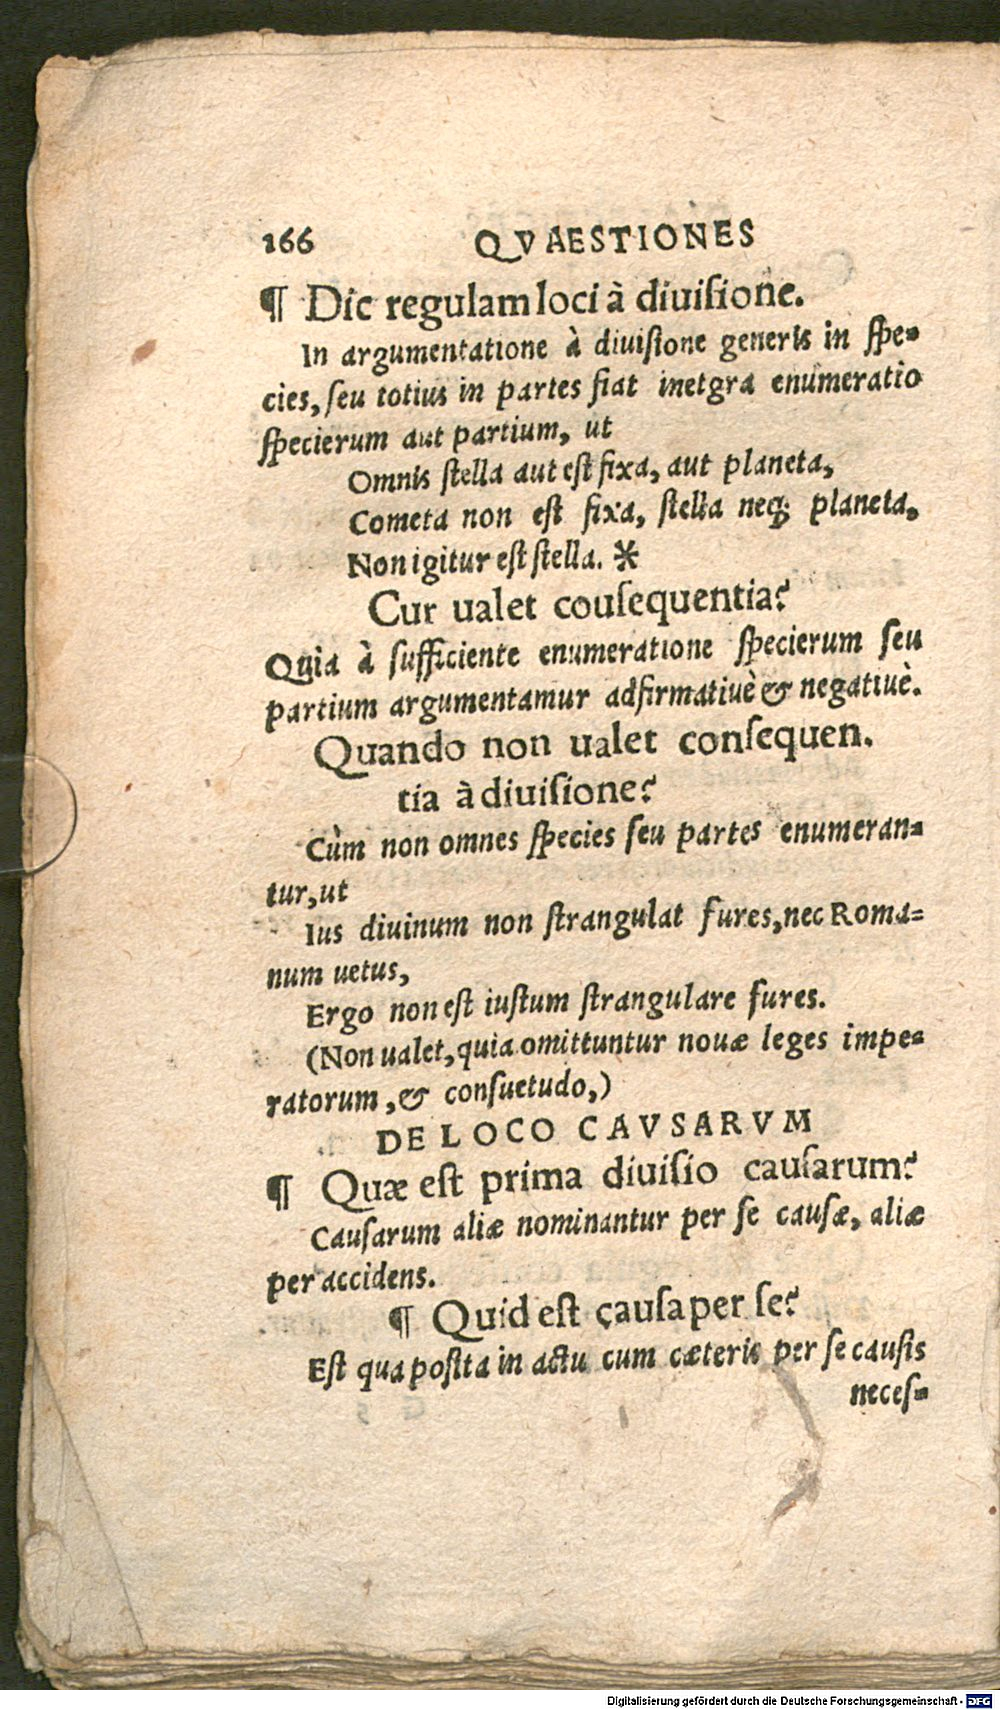 166 QVAESTIONES
¶ Dic regulam loci à diuiſione.
In argumentatione à diuiſione generis in ſpe-
cies, ſeu totius in partes fiat inetgra enumeratio
ſpecierum aut partium, ut
Omnis ſtella aut eſt fixa, aut planeta,
Cometa non eſt fixa, ſtella neq; planeta,
Non igitur eſt ſtella. *
Cur ualet couſequentia?
Quia à ſufficiente enumeratione ſpecierum ſeu
partium argumentamur adfirmatiuè & negatiuè.
Quando non ualet conſequen.
tia à diuiſione?
Cùm non omnes ſpecies ſeu partes enumeran-
tur, ut
Ius diuinum non ſtrangulat fures, nec Roma-
num uetus,
Ergo non eſt iuſtum ſtrangulare fures.
(Non ualet, quia omittuntur nouæ leges impe-
ratorum, & conſuetudo,)
DE LOCO CAVSARVM
¶ Quæ eſt prima diuiſio cauſarum?
Cauſarum aliæ nominantur per ſe cauſæ, aliæ
per accidens.
¶ Quid eſt çauſa per ſe?
Eſt qua poſita in actu cum cæteris per ſe cauſis
neceſ-
Digitalisierung gefördert durch die Deutsche Forschungsgemeinschaft - DFG